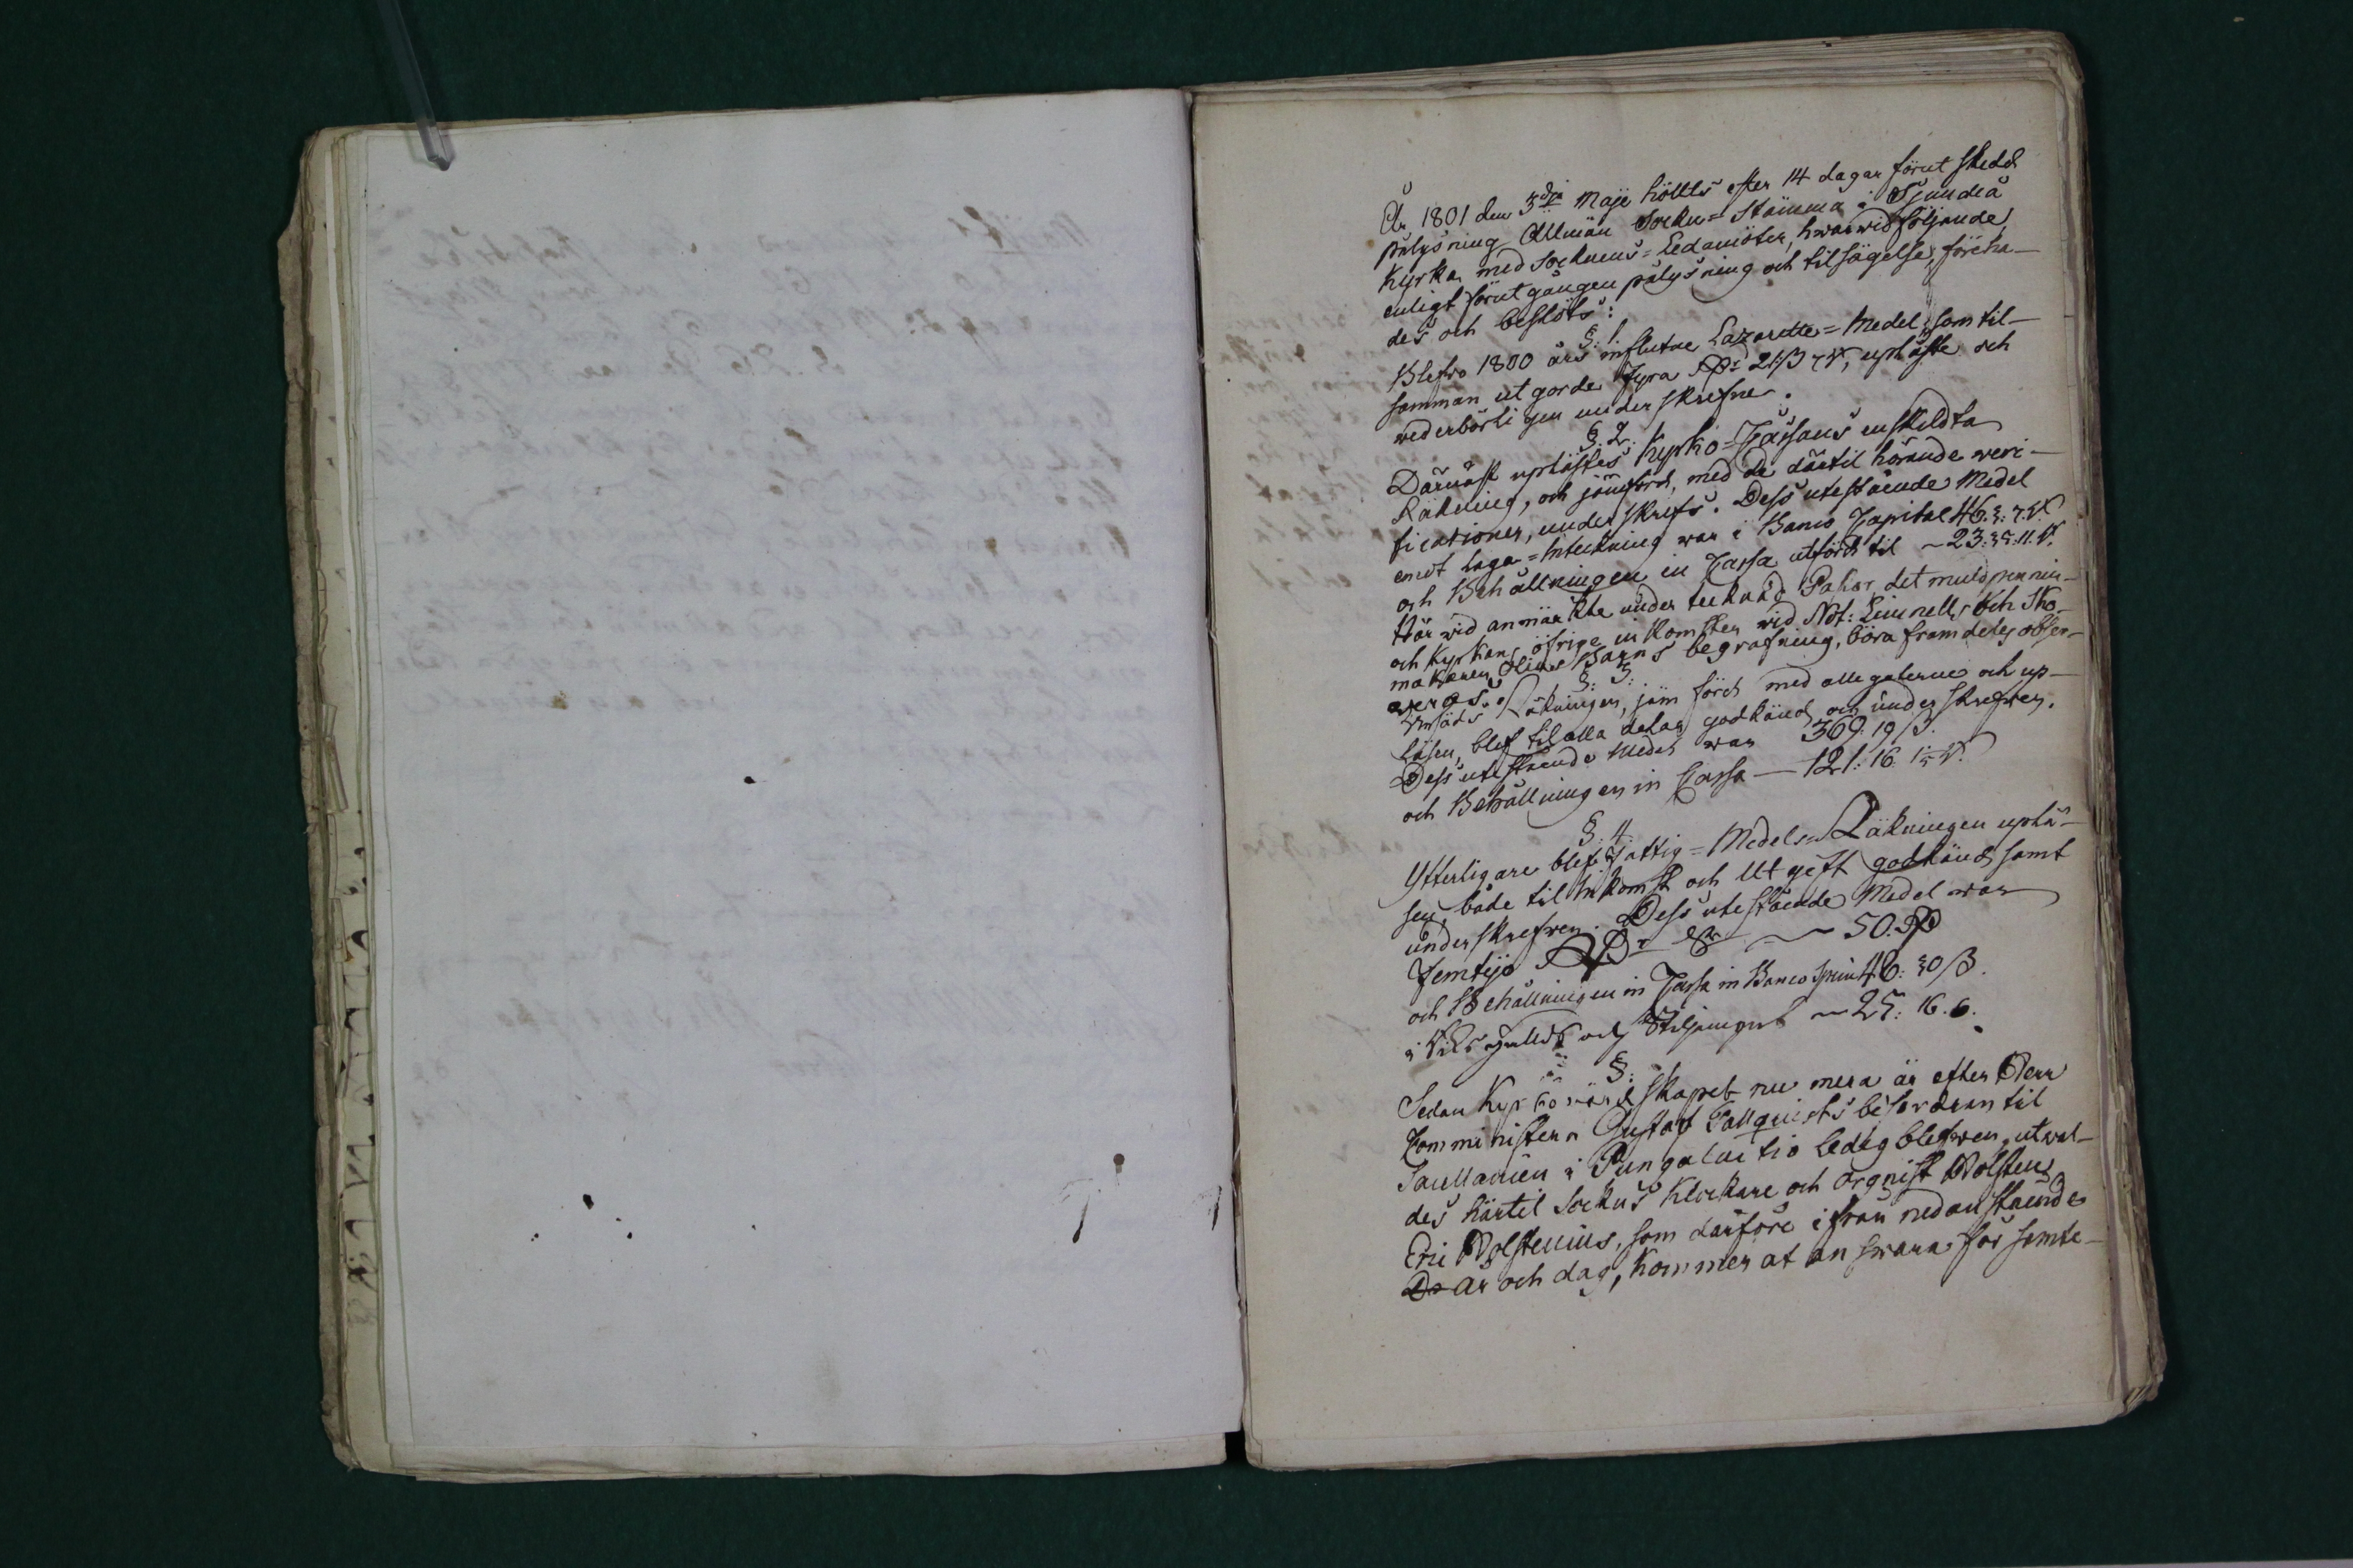 År 1801 den 3dje Maji höllts efter 14 dagar förut skedd
pålysning Allmän Sockn=Stämma i Sjundeå
Kyrka med Socknens=Ledamöter, hwarwid följande,
enligt förutgången pålysning och tilsägelse, föreha-
des och beslöts:
§: 1.
Blefwo 1800 års influtne Lazaretts=Medel, som til-
samman utgorde Fyra RD: 21 ß uplåste och
wederbörligen underskrefne.
§. 2.
Därnäst uplästes Kyrko=Cassans enskildta
Räkning, och jämford, med de därtil hörande weri-
ficationer, underskrefs. Dess utestående Medel
emot laga=Inteckning war i Banco Capital 46.
och Behållningen in Cassa utförd til ~ 23: 11.
Härwid anmärkte undertecknad Pastor, det muldpennin-
och Kyrkans öfrige inkomster wid Not: Limnells och Sko-
makaren Barns begrafning, böra framdeles obser-
weras.
§: 3:
Räkningen, jämförd med allegaterne och up-
läsen, blef til alla delar godkänd och underskrefwen.
Dess utestående Medel war 369: 19 ß.
och Behållningen in Cassa — 121: 16
§: 4.
Ytterligare blef Fattig=Medels=Räkningen uplä-
sen, både til Inkomst och Utgift godkänd samt
underskrefwen. Dess utestående Medel war
Femtijo RD: ~ 50. RD
och Behållningen in Cassa in Banco 46: 30 ß.
i Riksgälds och Skiljemynt ~ 25: 16. 6.
§:
Sedan Kyrkowärdskapet nu mera är efter Herr
Comministern Gustaf Tallquists befordran til
i Pungalaitio ledig blefwen, utwal-
des härtil Sockns Klockare och Orgnist Wolsten
Eric Wolstenius, som därföre ifrån nedanstående
år och dag, kommer at answara för samte-